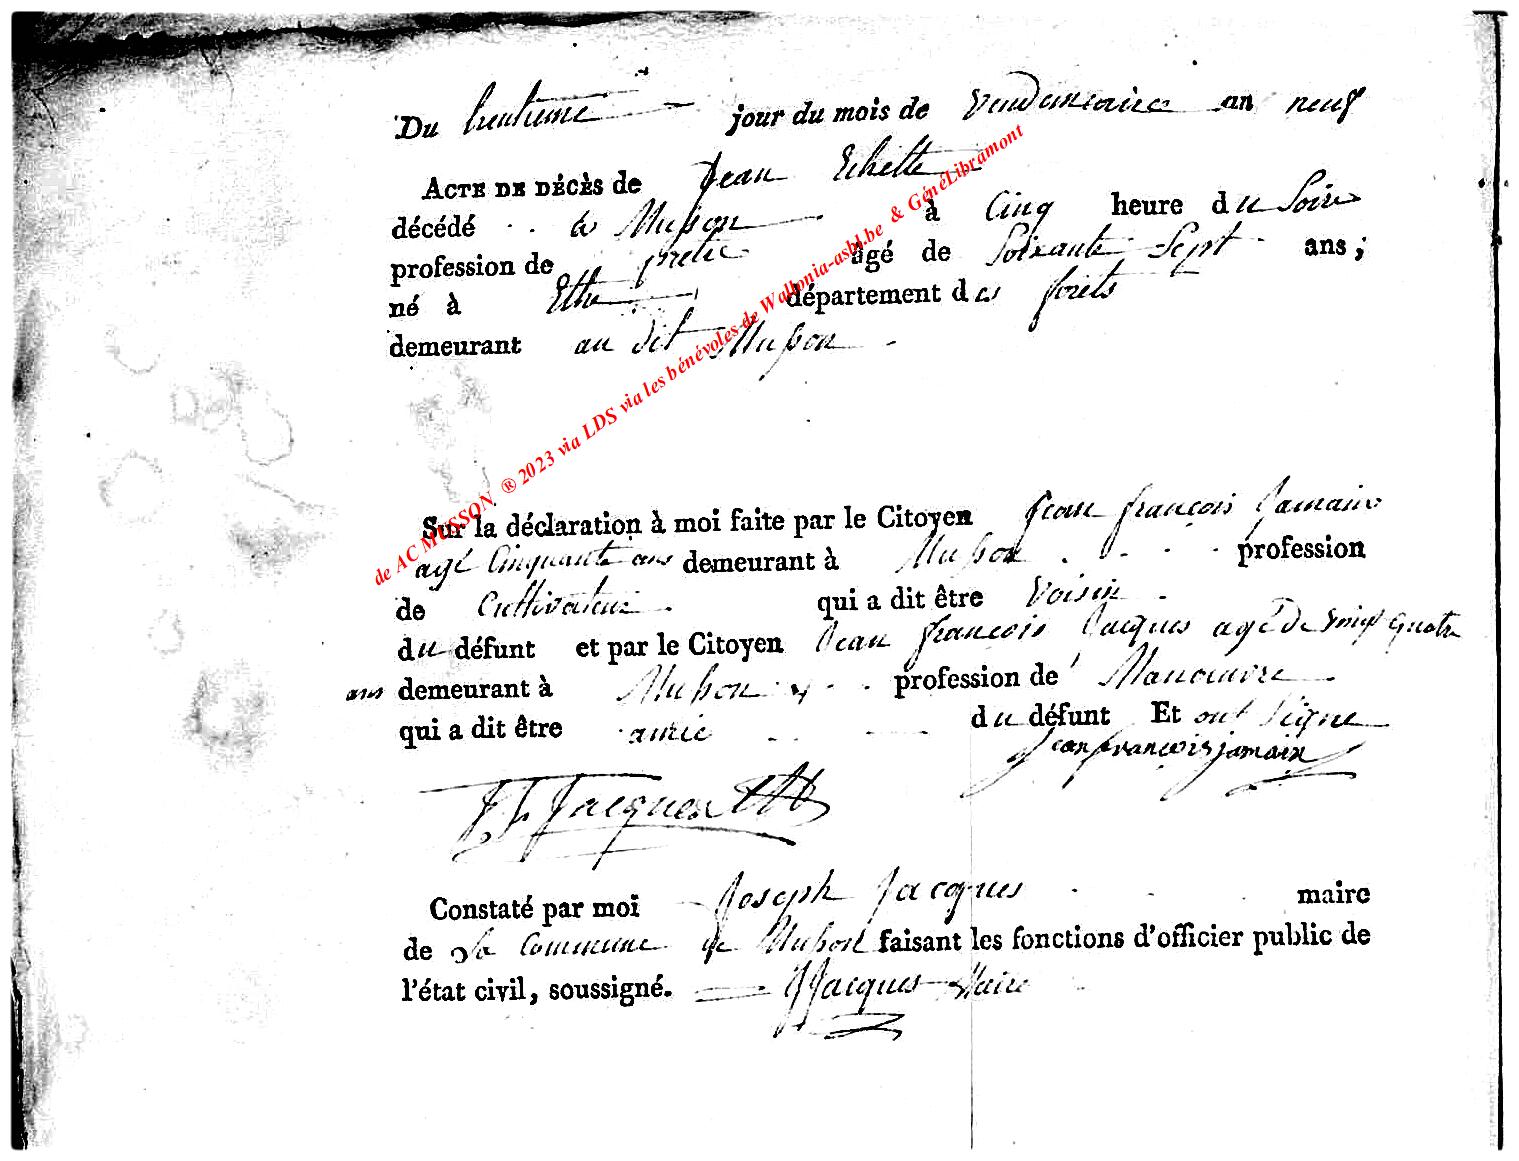 Du trentieme jour du mois de Vendemiaire an neuf
ACTE DE DÉCÈS de Jean Echette
décédé à Musson à Cinq heure du Soire
profession de pretre âgé de Soixante Sept ans ;
né à Ethe département des forets
demeurant au dit Musson
de AC MUSSON ® 2023 via LDS via les bénévoles de Wallonia-asbl.be & GénéLibramont
Sur la déclaration à moi faite par le Citoyen Jean françois Jamain
agé Cinquante ans demeurant à Musson profession
de Cultivateur qui a dit être Voisin
du défunt et par le Citoyen Jean françois Jacques agé De Vingt quatre
ans demeurant à Musson profession de Manoeuvre
qui a dit être amie du défunt Et ont Signe
jean françois jamain
J f Jacques
Constaté par moi Joseph Jacques maire
de la Commune de Musson faisant les fonctions d'officier public de
l'état civil, soussigné. JJacques Maire